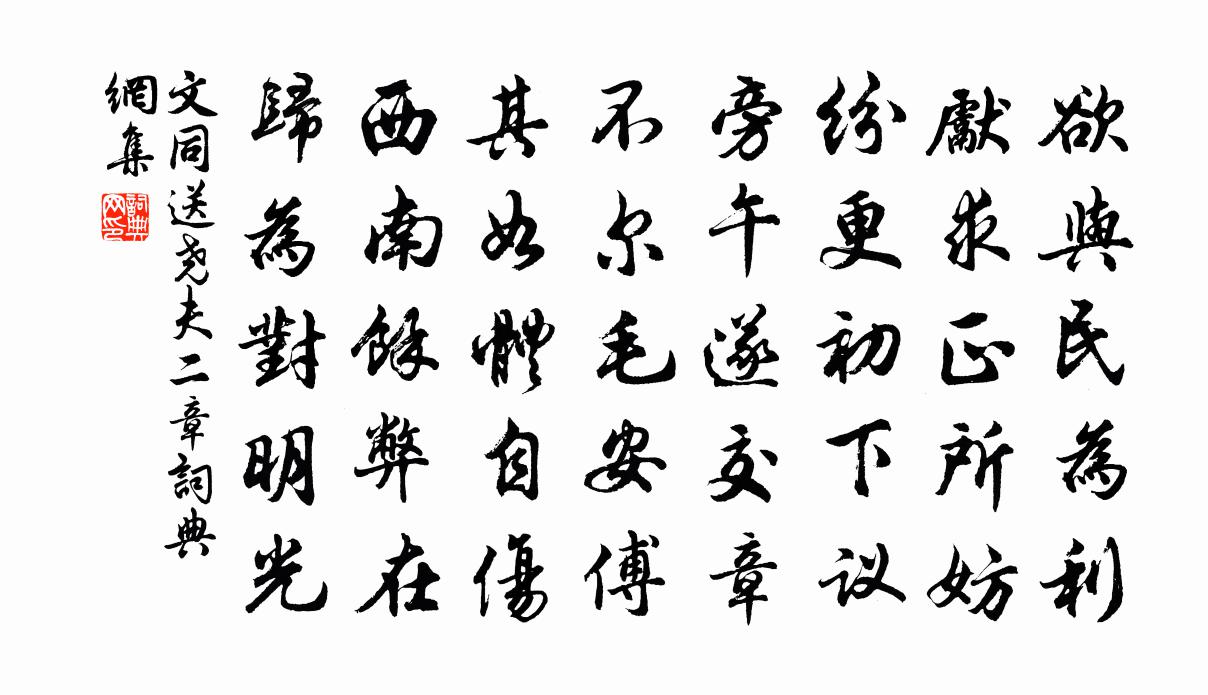 欲與民為利
獻求正所妨
紛更初下议
旁午遂交章
不尔毛安傅
其如體自傷
西南餘弊在
歸為對明光
文同送尧夫二章詞典
網集
詞典网印